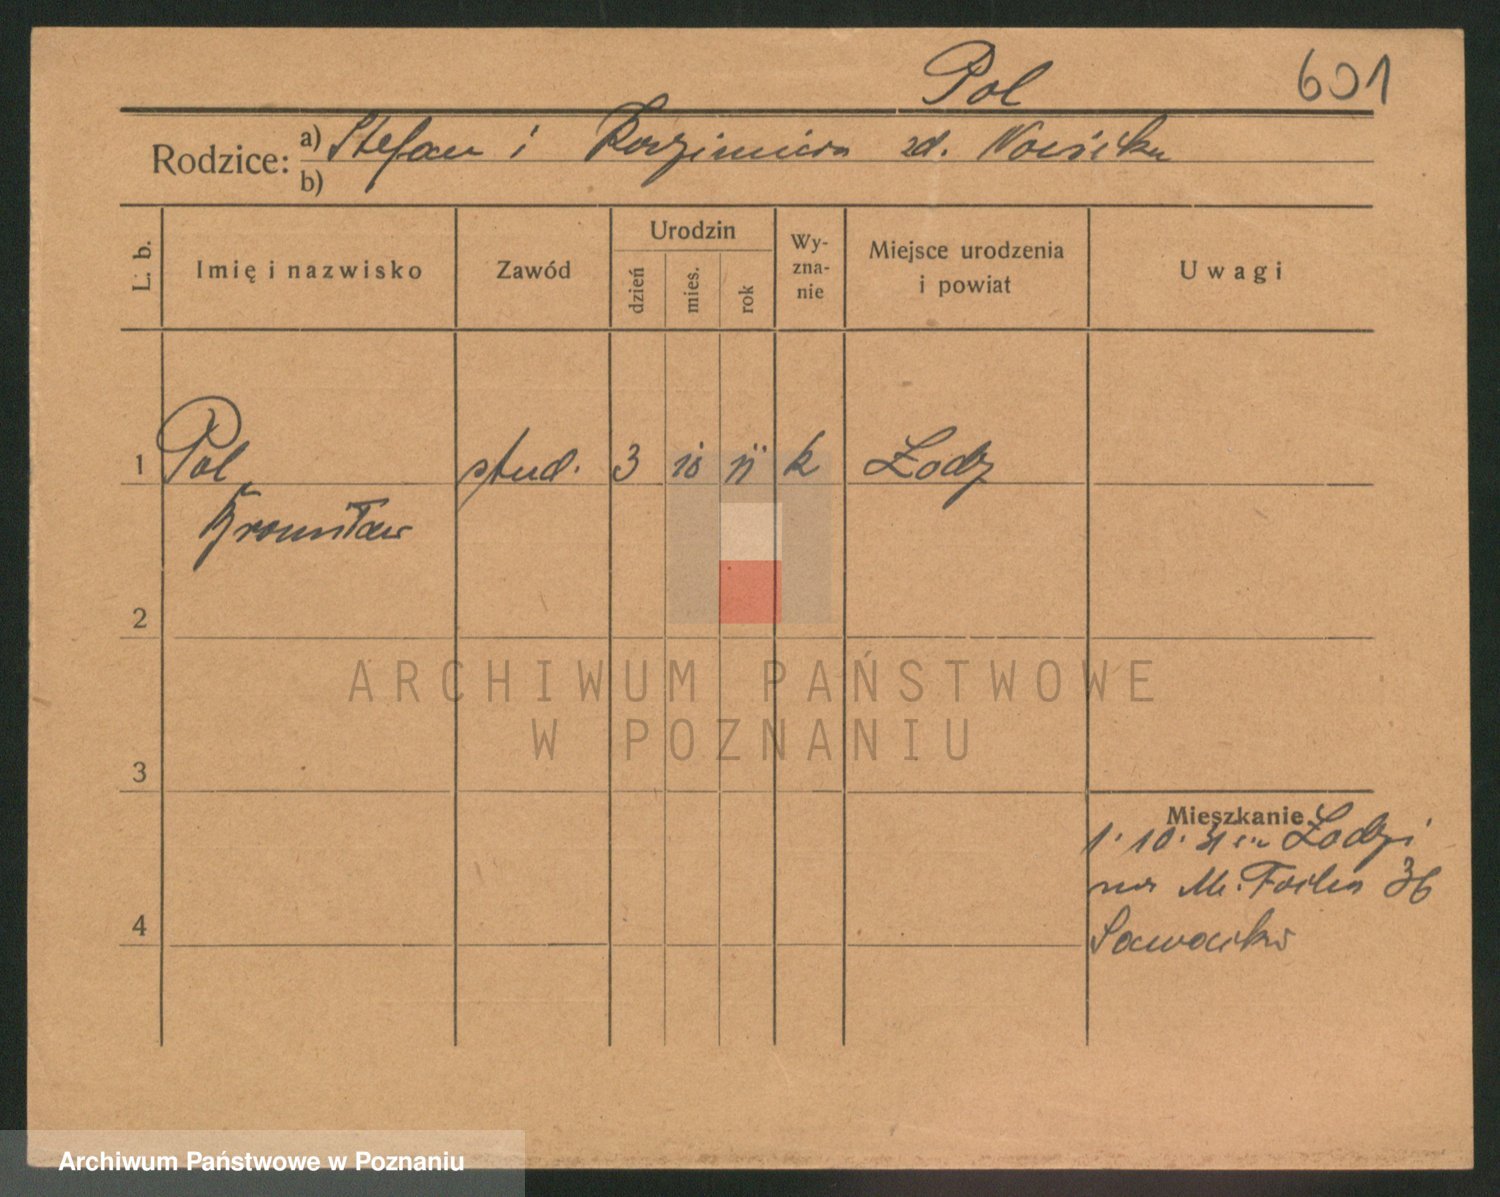 Pol 601
Rodzice: a) Stefan i Kazimiera zd.
b)
L. b. Imię i nazwisko Zawód Urodzin dzień mies. rok Wy-zna-nie Miejsce urodzenia i powiat Uwagi
1 Pol stud. 3 10 11 k Łodz
Bronisław
2
ARCHIWUM PAŃSTWOWE
W POZNANIU
3
Mieszkanie
1. 10. 31 Łodzi
na 36
4
Archiwum Państwowe w Poznaniu